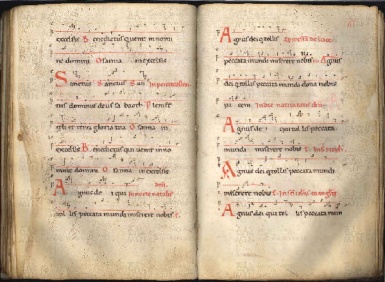 excelsis Benedictus qui venit in nomi
ne domini Osanna in excelsis
Sanctus Sanctus San
tus dominus deus sabaoth Pleni s
gloria tua Osanna in
excelsis Benedictus qui venit in no
mine domini Osanna in excelsis
Agnus de i qui
tol lis peccata mundi miserere nobis
Agnus dei qui tollis
peccata mundi miserere nobis Agnus
dei qui tollis peccata mundi dona nobis
pa cem
Agnus de i qui tollis peccata
mundi miserere nobis
Agnus dei qui tollis peccata mundi
miserere nobis
Agnus dei qui tol lis peccata mun